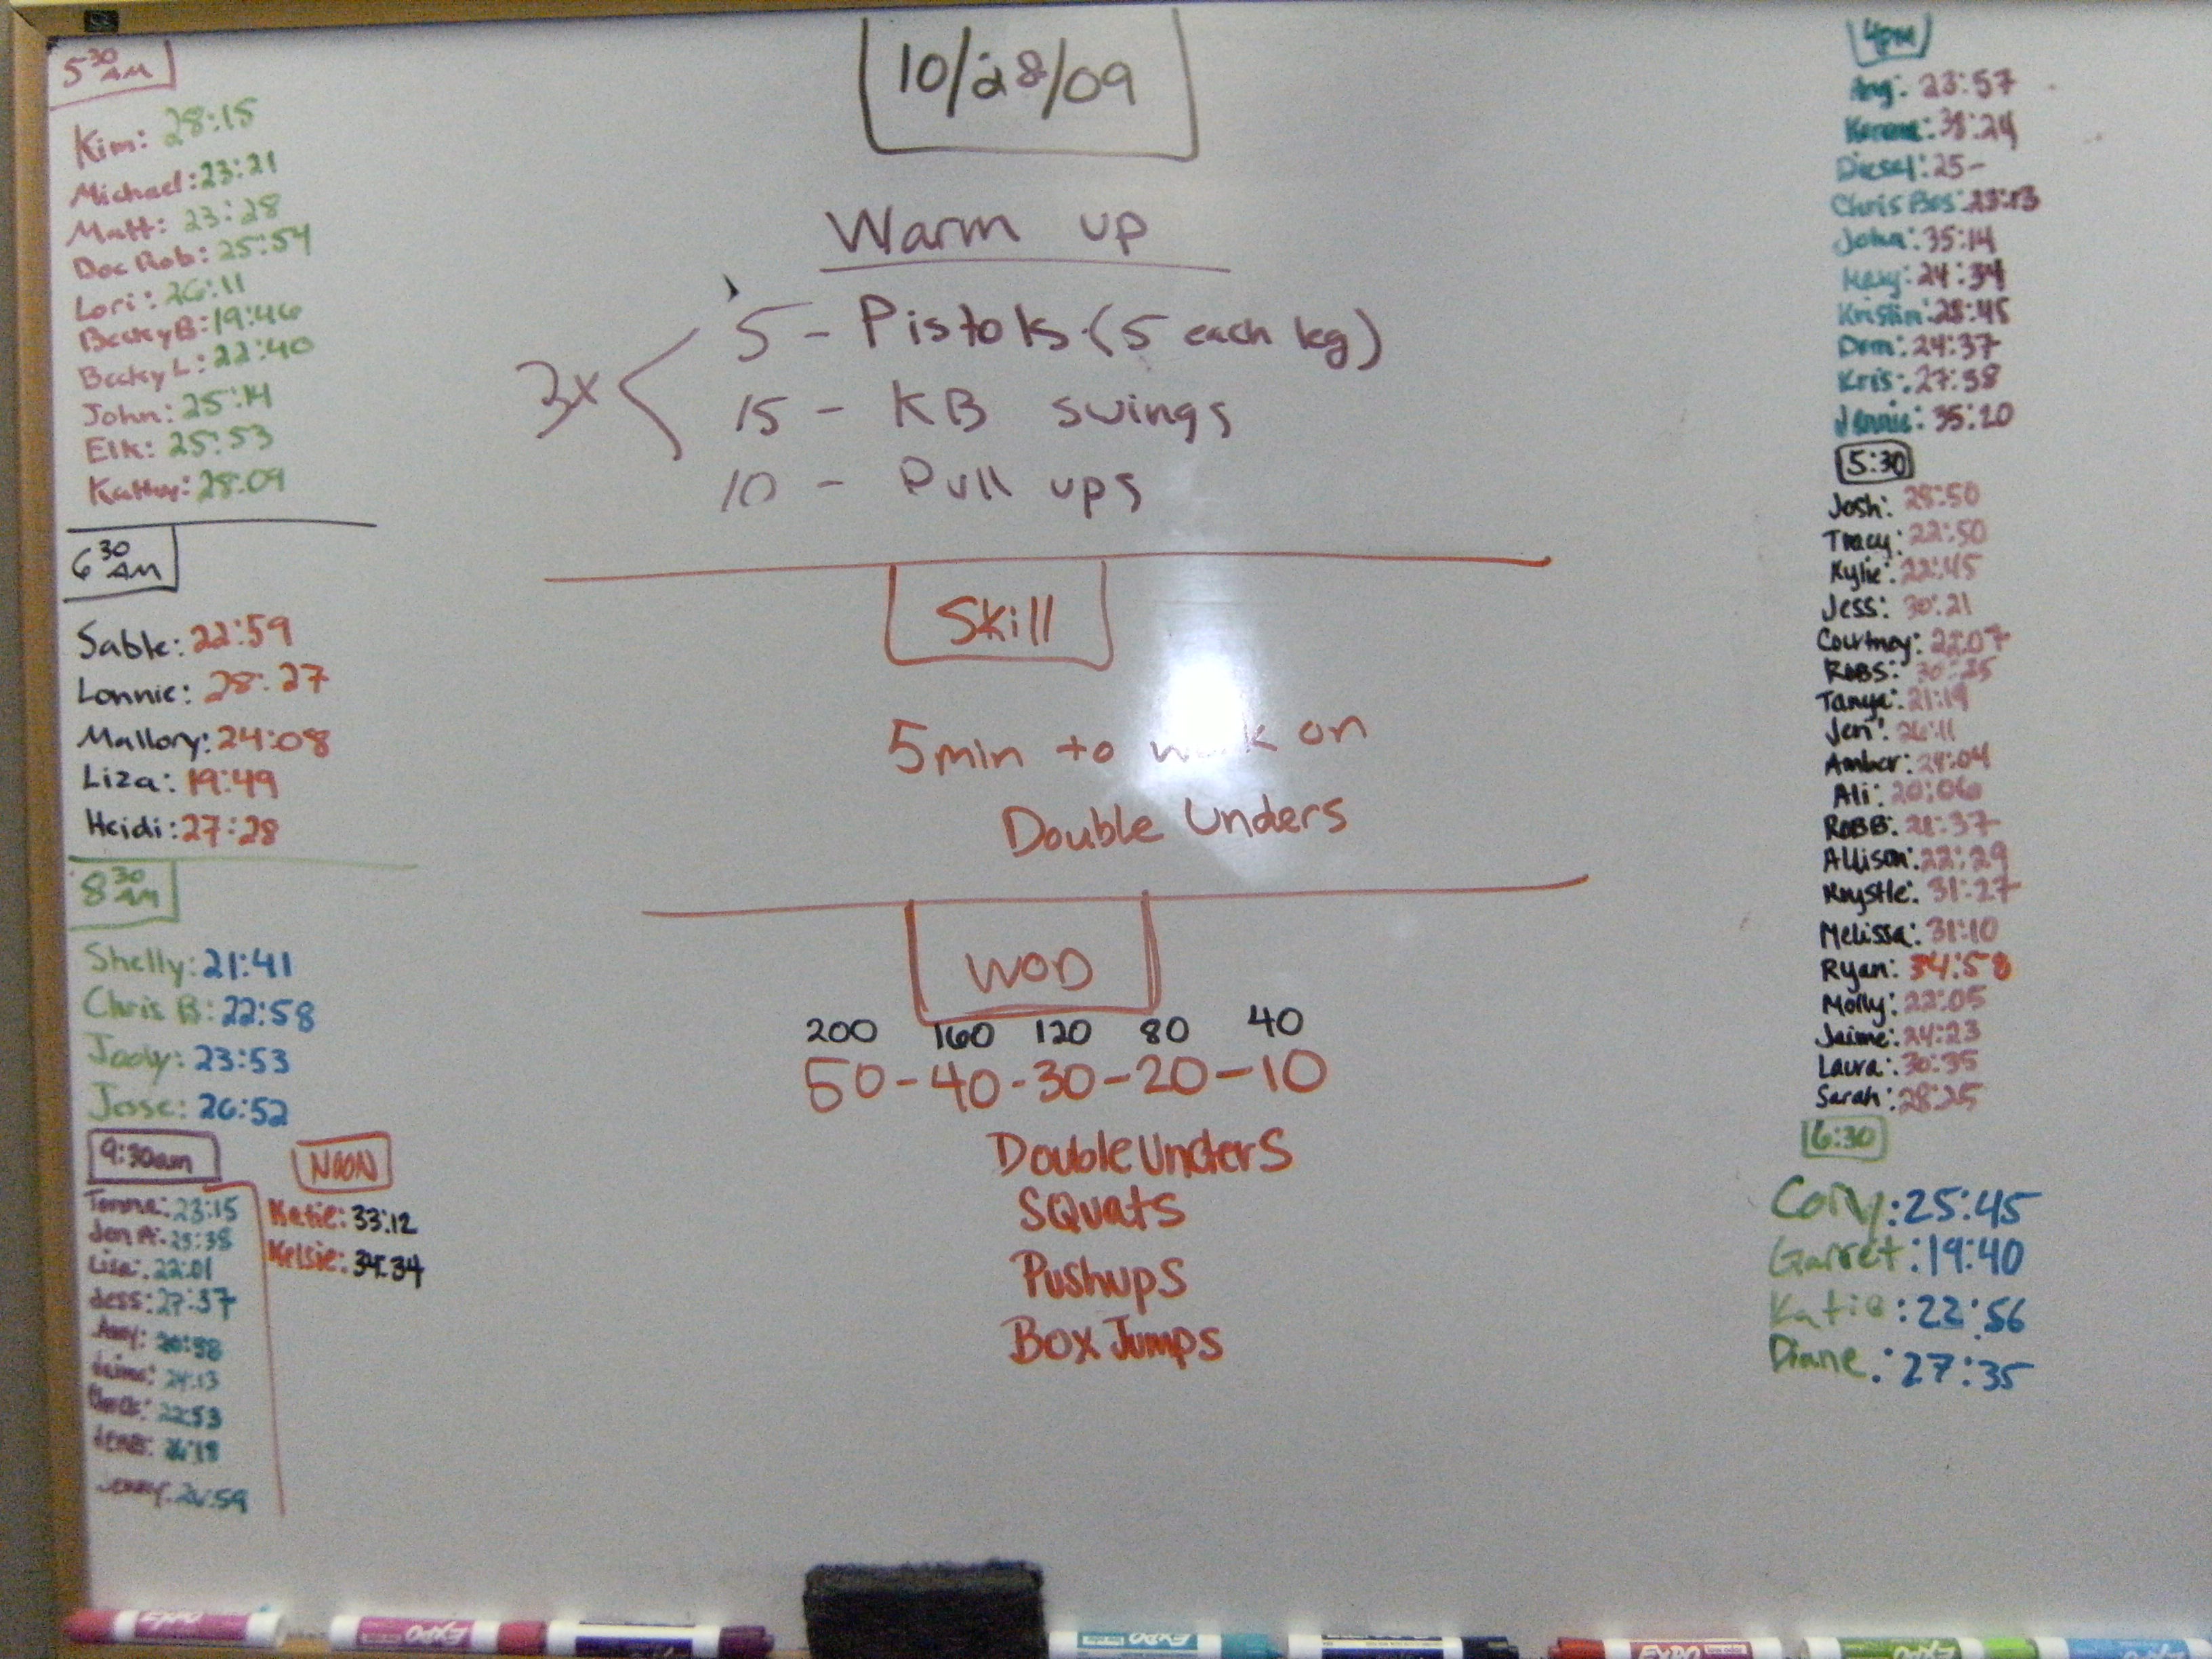 10/28/09
Warm up
3x
5 - Pistols (5 each leg)
15 - KB swings
10 - Pull ups
Skill
5 min to work on
Double Unders
WOD
200 160 120 80 40
50-40-30-20-10
Double Unders
Squats
Pushups
Box Jumps
5 30 AM
Kim: 28:15
Michael: 23:21
Matt: 23:28
Doc Rob: 25:54
Lori: 26:11
Becky B: 19:46
Becky L: 22:40
John: 25:14
Elk: 25:53
Kathy: 28:09
6 30 AM
Sable: 22:59
Lonnie: 28:27
Mallory: 24:08
Liza: 19:49
Heidi: 27:28
8 30 AM
Shelly: 21:41
Chris B: 22:58
Jody: 23:53
Jose: 26:52
9:30am
23:15
Jen
Lisa: 22:01
Jess: 27:37
Amy:
24:13
22:53
Jenny: 26:59
NOON
Katie: 33:12
Kelsie: 34:34
4pm
Ang: 23:57
38:24
Diesel: 25-
Chris Bos: 23:13
John: 35:14
24:34
Kristin: 28:45
Dom: 24:37
Kris: 27:38
Jennie: 35:20
5:30
Josh: 28:50
Tracy: 22:50
Kylie: 22:45
Jess: 30:21
Courtney: 22:07
Rob S:
Tanya: 21:19
Jen: 26:11
Amber: 24:04
Ali: 20:06
Rob B:
Allison: 22:29
Krystle: 31:27
Melissa: 31:10
Ryan: 34:58
Molly: 22:05
Jaime: 24:23
Laura: 30:35
Sarah: 28:25
6:30
Cory: 25:45
Garret: 19:40
Katie: 22:56
Diane: 27:35
EXPO
EXPO
EXPO
EXPO
EXPO